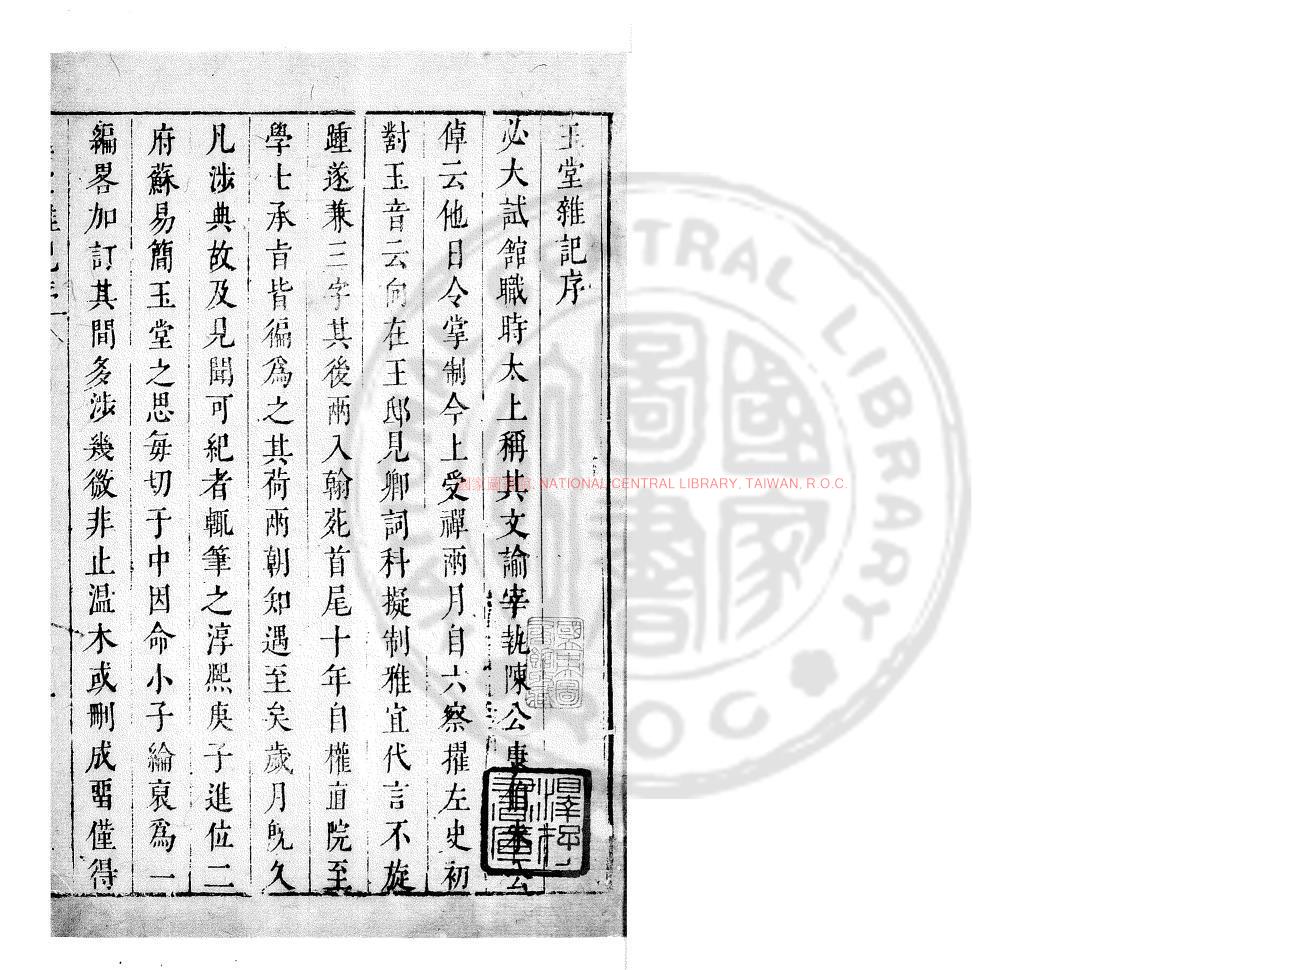 玉堂雜記序
必大試館職時太上稱其文諭宰執陳公康伯朱公
倬云他日令掌制今上受禪兩月自六察擢左史初
對玉音云向在王邸見卿詞科擬制雅宜代言不旋
踵遂兼三字其後兩入翰苑首尾十年自權直院至
學士承旨皆徧為之其荷兩朝知遇至矣歲月旣久
凡涉典故及見聞可紀者輒筆之淳熙庚子進位二
府蘇易簡玉堂之思每切于中因命小子綸裒為一
編畧加訂其間多涉幾微非止温木或刪或畱僅得
國家圖書館, NATIONAL CENTRAL LIBRARY, TAIWAN, R.O.C.
NATIONAL CENTRAL LIBRARY
R.O.C.